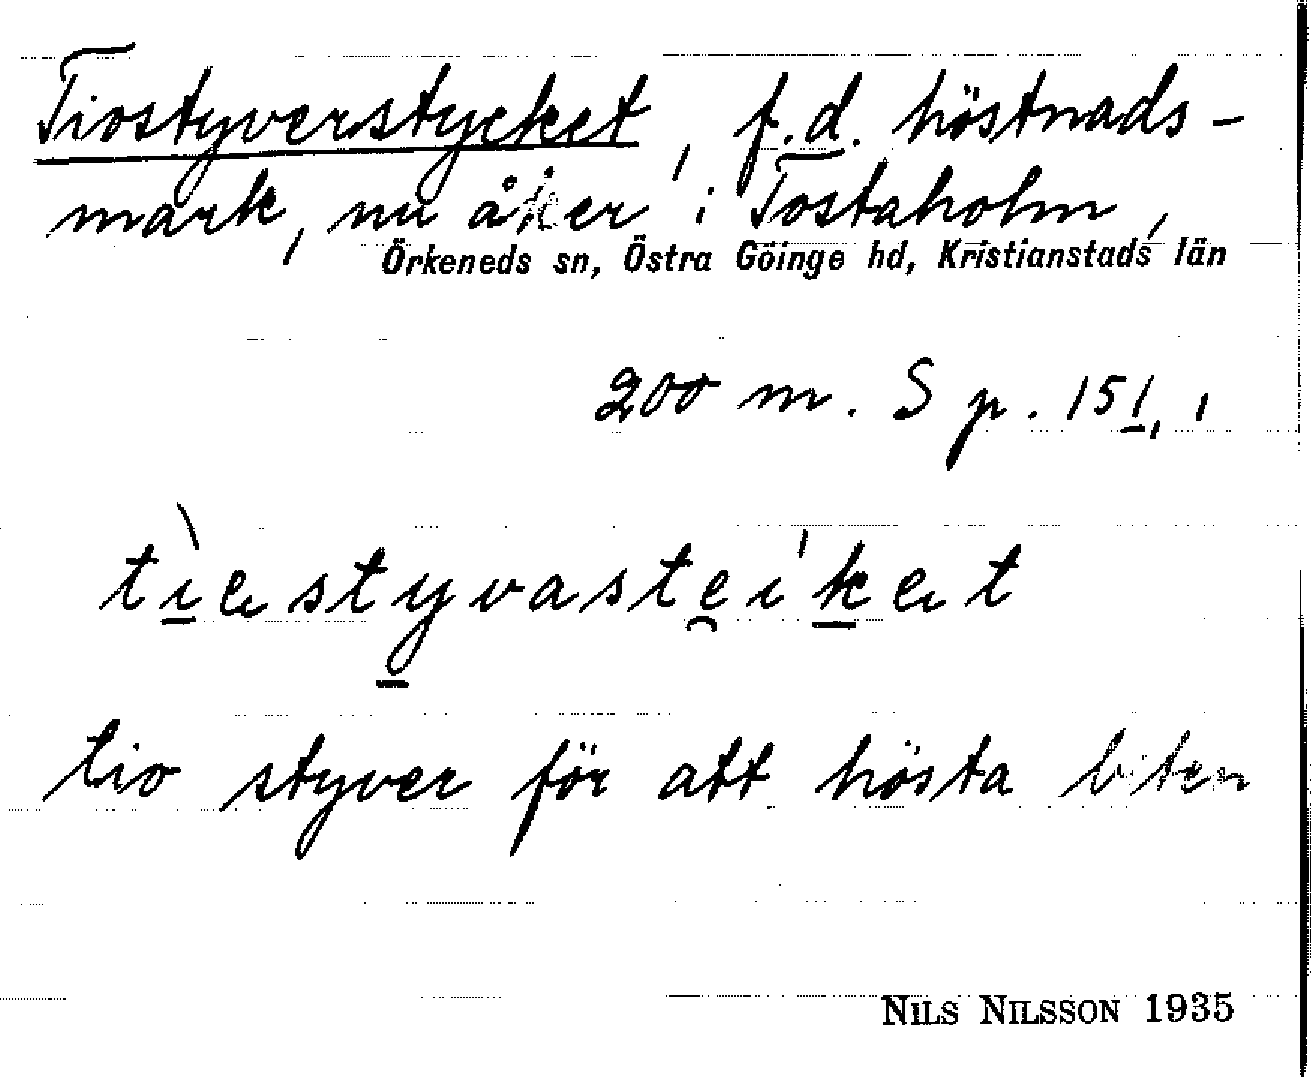 Tiostyverstycket, f.d. höstnads-
mark, nu åker i Tostaholm,
Örkeneds sn, Östra Göinge hd, Kristianstads län
200 m. S p. 151, 1
tiestyvasteiket
tio styver för att hösta biten
NILS NILSSON 1935